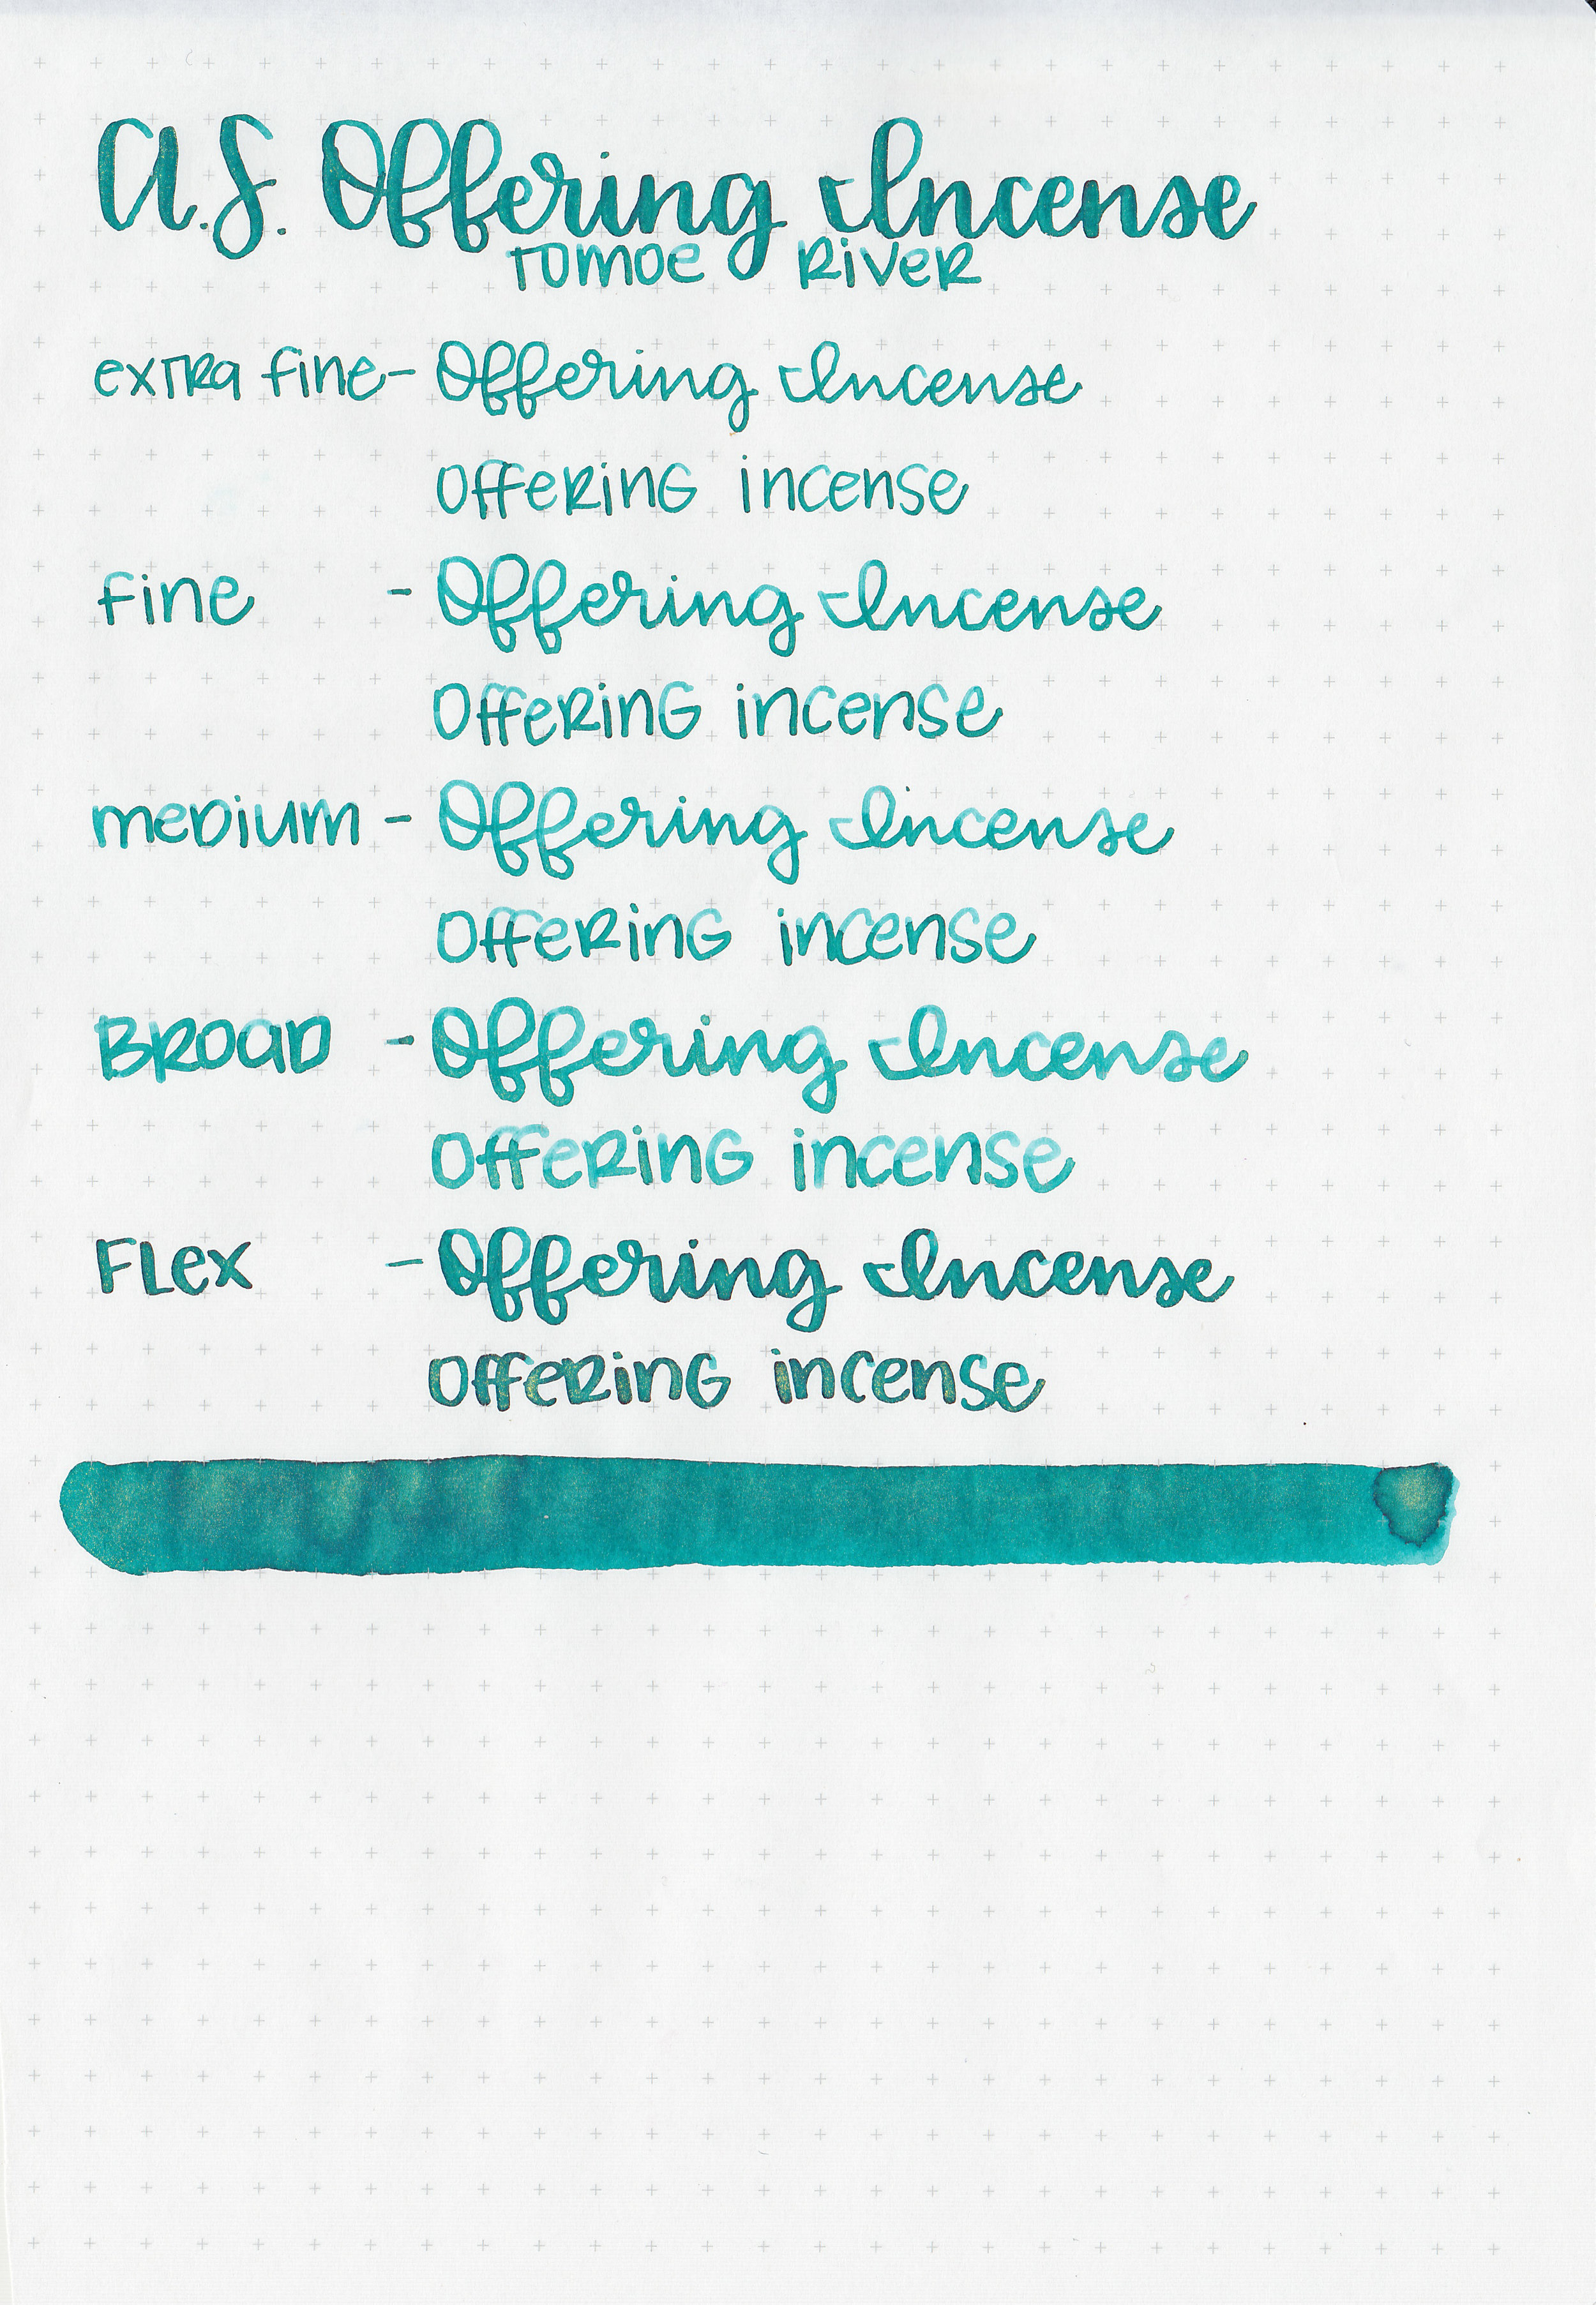 A.S. Offering Incense
Tomoe River
extra fine - Offering Incense
Offering incense
fine - Offering Incense
Offering incense
medium - Offering Incense
Offering incense
Broad - Offering Incense
Offering incense
Flex - Offering Incense
Offering incense